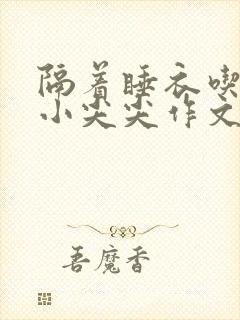 隔着睡衣喫
小尖尖作文
吾魔香